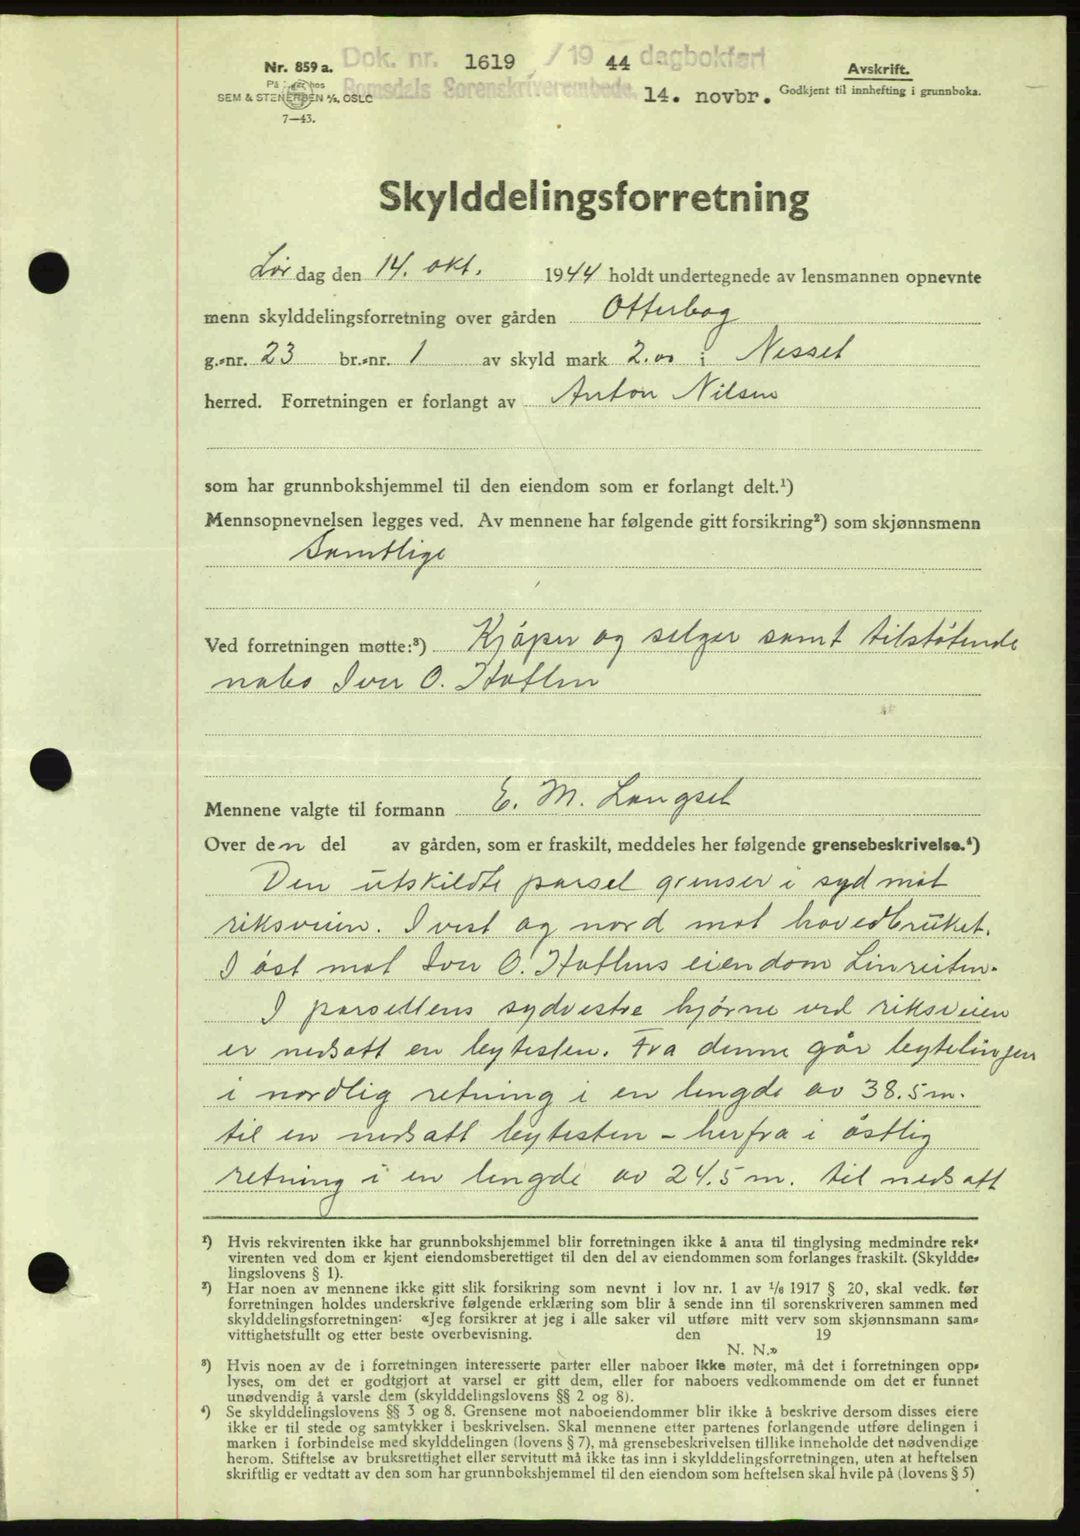 Nr. 859 a.
På lager hos
SEM & STENERSEN A/S, OSLO
7—43.
Dok. nr. 1619 /19 44 dagbokført
Romsdals Sorenskriverembede. 14. novbr.
Avskrift.
Godkjent til innhefting i grunnboka.
Skylddelingsforretning
Lør dag den 14. okt. 1944 holdt undertegnede av lensmannen opnevnte
menn skylddelingsforretning over gården Otterbog
g.-nr. 23 br.-nr. 1 av skyld mark 2.00 i Nesset
herred. Forretningen er forlangt av Anton Nilsen
som har grunnbokshjemmel til den eiendom som er forlangt delt.¹)
Mennsopnevnelsen legges ved. Av mennene har følgende gitt forsikring²) som skjønnsmenn
Samtlige
Ved forretningen møtte:³) Kjøper og selger samt tilstøtende
nabo Iver O. Hatlen
Mennene valgte til formann E. M. Langset
Over den del av gården, som er fraskilt, meddeles her følgende grensebeskrivelse.⁴)
Den utskildte parsel grenser i syd mot
riksveien. I vest og nord mot hovedbruket.
I øst mot Iver O. Hatlens eiendom Linreiten.
I parsellens sydvestre hjørne ved riksveien
er nedsatt en bytesten. Fra denne går bytelinjen
i nordlig retning i en lengde av 38.5 m.
til en nedsatt bytesten – herfra i østlig
retning i en lengde av 24.5 m. til nedsatt
¹) Hvis rekvirenten ikke har grunnbokshjemmel blir forretningen ikke å anta til tinglysing medmindre rek-
virenten ved dom er kjent eiendomsberettiget til den del av eiendommen som forlanges fraskilt. (Skyldde-
lingslovens § 1).
²) Har noen av mennene ikke gitt slik forsikring som nevnt i lov nr. 1 av 1/6 1917 § 20, skal vedk. før
forretningen holdes underskrive følgende erklæring som blir å sende inn til sorenskriveren sammen med
skylddelingsforretningen: «Jeg forsikrer at jeg i alle saker vil utføre mitt verv som skjønnsmann sam-
vittighetsfullt og etter beste overbevisning. den 19
N. N.»
³) Hvis noen av de i forretningen interesserte parter eller naboer ikke møter, må det i forretningen opp-
lyses, om det er godtgjort at varsel er gitt dem, eller for naboers vedkommende om det er funnet
unødvendig å varsle dem (skylddelingslovens §§ 2 og 8).
⁴) Se skylddelingslovens §§ 3 og 8. Grensene mot naboeiendommer blir ikke å beskrive dersom disses eiere
ikke er til stede og samtykker i beskrivelsen. Skal mennene etter partenes forlangende utføre delingen i
marken i forbindelse med skylddelingen (lovens § 7), må grensebeskrivelsen tillike inneholde det nødvendige
herom. Stiftelse av bruksrettighet eller servitutt må ikke tas inn i skylddelingsforretningen, uten at heftelsen
skriftlig er vedtatt av den som har grunnbokshjemmel til den eiendom som heftelsen skal hvile på (lovens § 5)